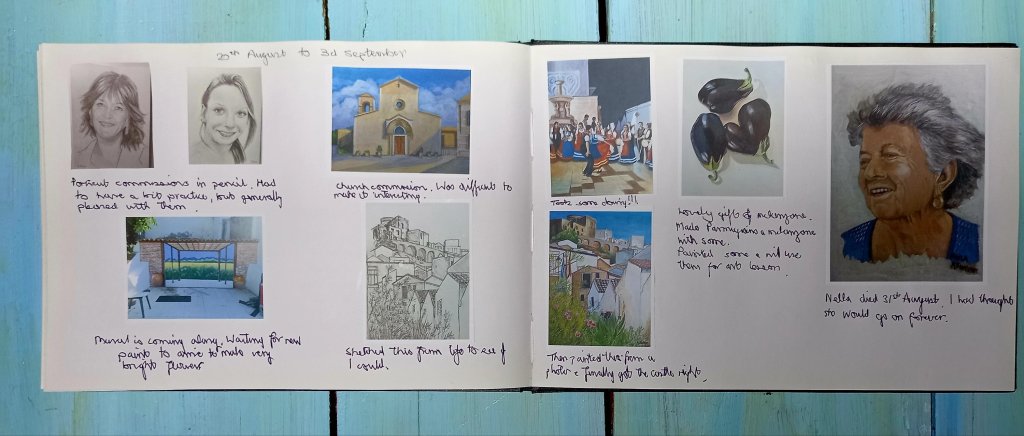 29th August to 3d September
Portrait commissions in pencil. Had
to have a bit practice, but generally
pleased with them.
Church commission. Was difficult to
make it interesting.
Mural is coming along. Waiting for new
paint to arrive to make very
bright flowers
Sketched this from life to see if
I could.
Took some doing!!!
Then painted this from a
photo & finally got the castle right.
Lovely gift of melanzane.
Made Parmigiana
with some.
Painted some & will use
them for art lesson.
Nella died 31st August. I had thought
she would go on forever.